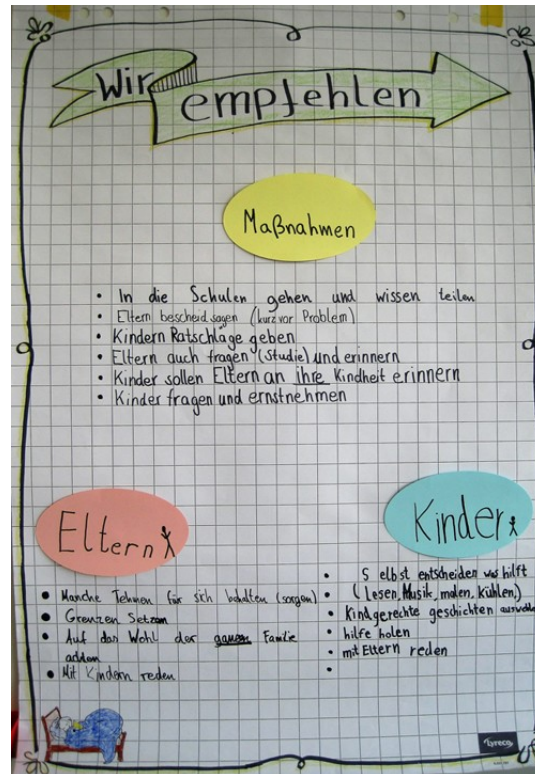 Wir
empfehlen
Maßnahmen
• In die Schulen gehen und wissen teilen
• Eltern bescheid sagen (kurz vor Problem)
• Kindern Ratschläge geben
• Eltern auch fragen (Studie) und erinnern
• Kinder sollen Eltern an ihre Kindheit erinnern
• Kinder fragen und ernstnehmen
Eltern
• Manche Tehmen für sich behalten (sorgen)
• Grenzen Setzen
• Auf das Wohl der ganzen Familie
achten
• Mit Kindern reden
Kinder
• Selbst entscheiden was hilft
• (Lesen, Musik, malen, kühlen,)
• Kindgerechte geschichten
• hilfe holen
• mit Eltern reden
•